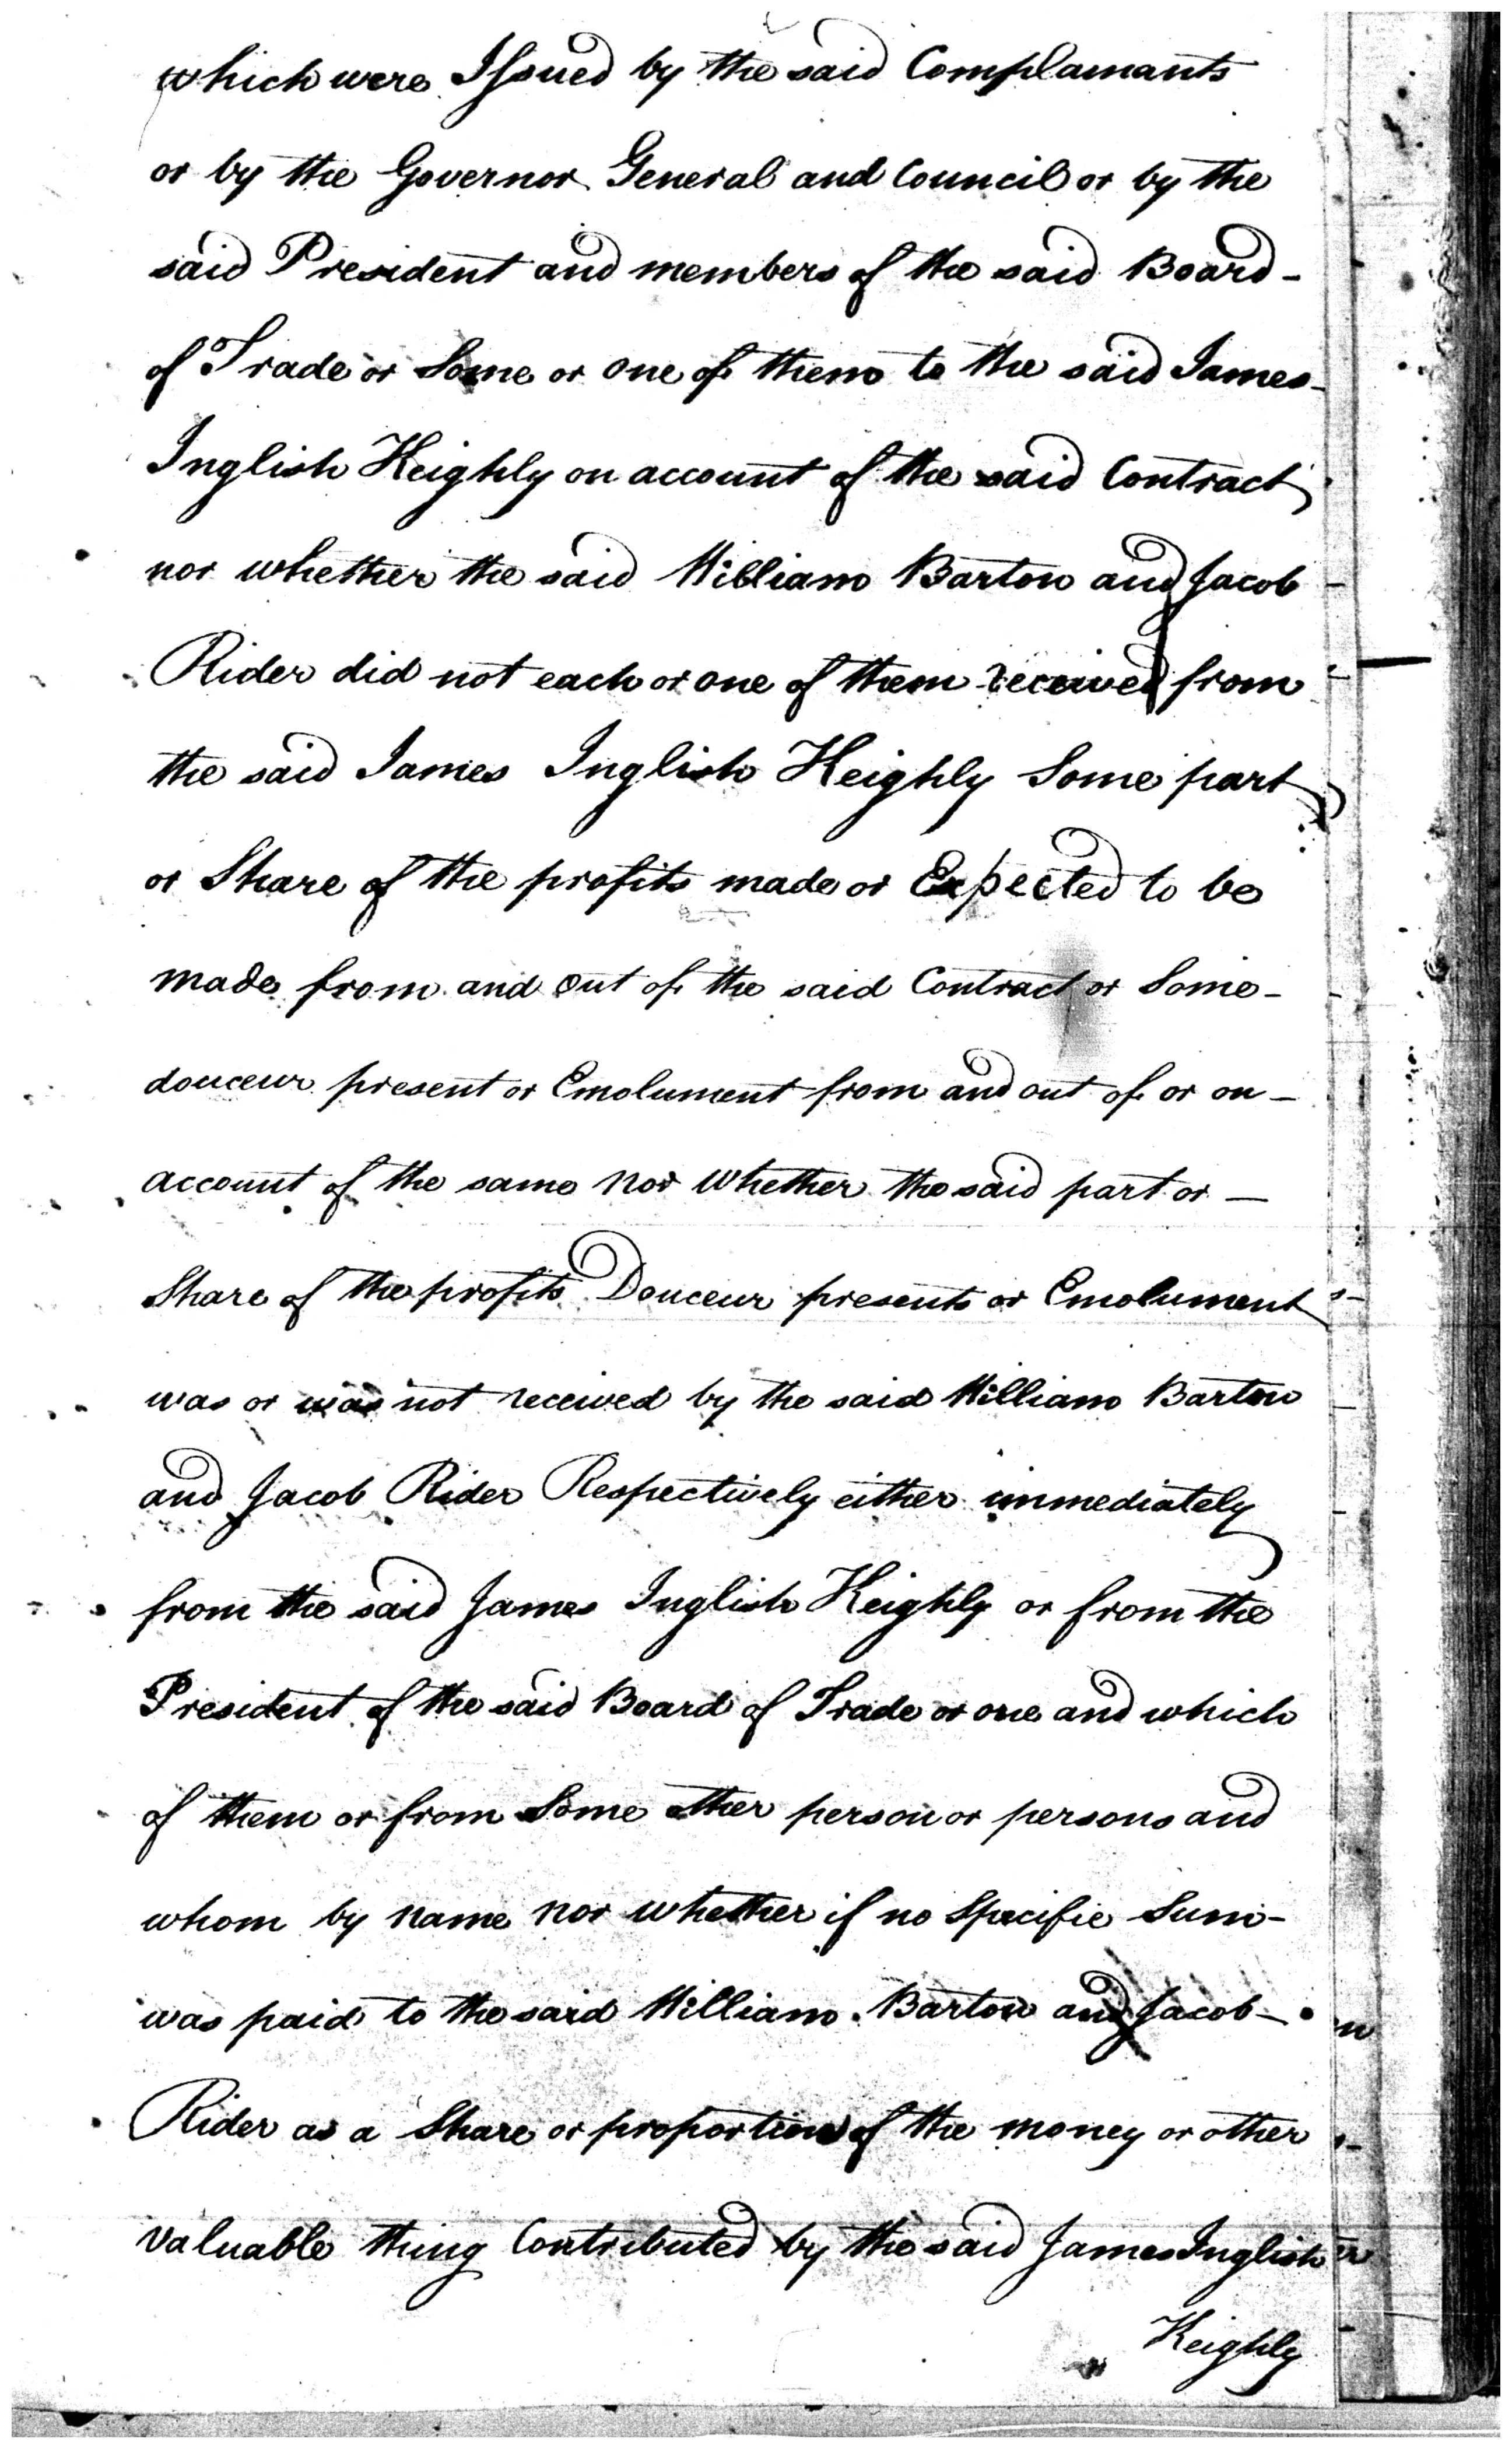 which were Issued by the said Complamants
or by the Governor General and Council or by the
said President and members of the said Board -
of Trade or Some or one of them to the said James
Inglish Keighly on account of the said Contract
nor whether the said William Barton and Jacob
Rider did not each or one of them received from
the said James Inglish Keighly Some part
or Share of the profits made or Expected to be
made from and out of the said Contract or Some -
douceur present or Emolument from and out of or on -
account of the same nor whether the said part or -
Share of the profits Douceur presents or Emolument
was or was not received by the said William Barton
and Jacob Rider Respectively either immediately
from the said James Inglish Keighly or from the
President of the said Board of Trade or one and which
of them or from Some other person or persons and
whom by name nor whether if no Specific Sum -
was paid to the said William Barton and Jacob -
Rider as a Share or proportion of the money or other
valuable thing Contributed by the said James Inglish
Keighly